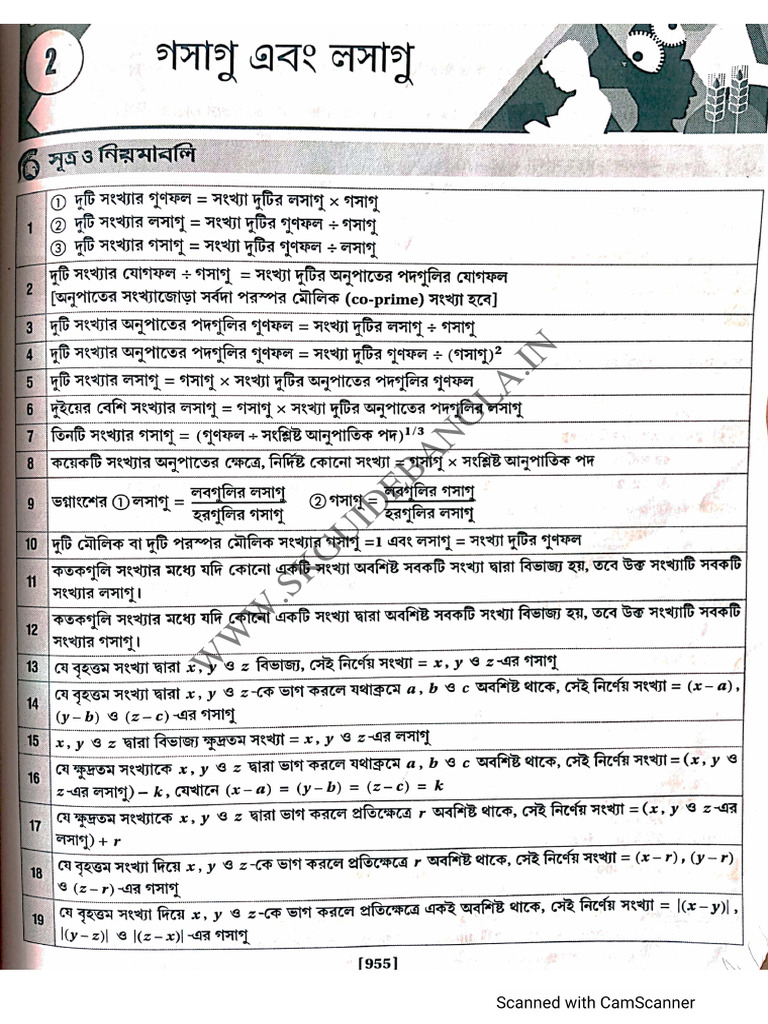 2
গসাগু এবং লসাগু
সূত্র ও নিয়মাবলি
1
① দুটি সংখ্যার গুণফল = সংখ্যা দুটির লসাগু × গসাগু
② দুটি সংখ্যার লসাগু = সংখ্যা দুটির গুণফল ÷ গসাগু
③ দুটি সংখ্যার গসাগু = সংখ্যা দুটির গুণফল ÷ লসাগু
2
দুটি সংখ্যার যোগফল ÷ গসাগু = সংখ্যা দুটির অনুপাতের পদগুলির যোগফল
[অনুপাতের সংখ্যাজোড়া সর্বদা পরস্পর মৌলিক (co-prime) সংখ্যা হবে]
3 দুটি সংখ্যার অনুপাতের পদগুলির গুণফল = সংখ্যা দুটির লসাগু ÷ গসাগু
4 দুটি সংখ্যার অনুপাতের পদগুলির গুণফল = সংখ্যা দুটির গুণফল ÷ (গসাগু)²
5 দুটি সংখ্যার লসাগু = গসাগু × সংখ্যা দুটির অনুপাতের পদগুলির গুণফল
6 দুইয়ের বেশি সংখ্যার লসাগু = গসাগু × সংখ্যা দুটির অনুপাতের পদগুলির লসাগু
7 তিনটি সংখ্যার গসাগু = (গুণফল ÷ সংশ্লিষ্ট আনুপাতিক পদ)^1/3
8 কয়েকটি সংখ্যার অনুপাতের ক্ষেত্রে, নির্দিষ্ট কোনো সংখ্যা = গসাগু × সংশ্লিষ্ট আনুপাতিক পদ
9 ভগ্নাংশের ① লসাগু = লবগুলির লসাগু / হরগুলির গসাগু ② গসাগু = লবগুলির গসাগু / হরগুলির লসাগু
10 দুটি মৌলিক বা দুটি পরস্পর মৌলিক সংখ্যার গসাগু =1 এবং লসাগু = সংখ্যা দুটির গুণফল
11 কতকগুলি সংখ্যার মধ্যে যদি কোনো একটি সংখ্যা অবশিষ্ট সবকটি সংখ্যা দ্বারা বিভাজ্য হয়, তবে উক্ত সংখ্যাটি সবকটি
সংখ্যার লসাগু।
12 কতকগুলি সংখ্যার মধ্যে যদি কোনো একটি সংখ্যা দ্বারা অবশিষ্ট সবকটি সংখ্যা বিভাজ্য হয়, তবে উক্ত সংখ্যাটি সবকটি
সংখ্যার গসাগু।
13 যে বৃহত্তম সংখ্যা দ্বারা x, y ও z বিভাজ্য, সেই নির্ণেয় সংখ্যা = x, y ও z-এর গসাগু
14 যে বৃহত্তম সংখ্যা দ্বারা x, y ও z-কে ভাগ করলে যথাক্রমে a, b ও c অবশিষ্ট থাকে, সেই নির্ণেয় সংখ্যা = (x – a),
(y – b) ও (z – c)-এর গসাগু
15 x, y ও z দ্বারা বিভাজ্য ক্ষুদ্রতম সংখ্যা = x, y ও z-এর লসাগু
16 যে ক্ষুদ্রতম সংখ্যাকে x, y ও z দ্বারা ভাগ করলে যথাক্রমে a, b ও c অবশিষ্ট থাকে, সেই নির্ণেয় সংখ্যা = (x, y ও
z-এর লসাগু) – k, যেখানে (x – a) = (y – b) = (z – c) = k
17 যে ক্ষুদ্রতম সংখ্যাকে x, y ও z দ্বারা ভাগ করলে প্রতিক্ষেত্রে r অবশিষ্ট থাকে, সেই নির্ণেয় সংখ্যা = (x, y ও z-এর
লসাগু) + r
18 যে বৃহত্তম সংখ্যা দিয়ে x, y ও z-কে ভাগ করলে প্রতিক্ষেত্রে r অবশিষ্ট থাকে, সেই নির্ণেয় সংখ্যা = (x – r), (y – r)
ও (z – r)-এর গসাগু
19 যে বৃহত্তম সংখ্যা দিয়ে x, y ও z-কে ভাগ করলে প্রতিক্ষেত্রে একই অবশিষ্ট থাকে, সেই নির্ণেয় সংখ্যা = |(x – y)|,
|(y – z)| ও |(z – x)|-এর গসাগু
WWW.SKGUIDEBANGLA.IN
[955]
Scanned with CamScanner